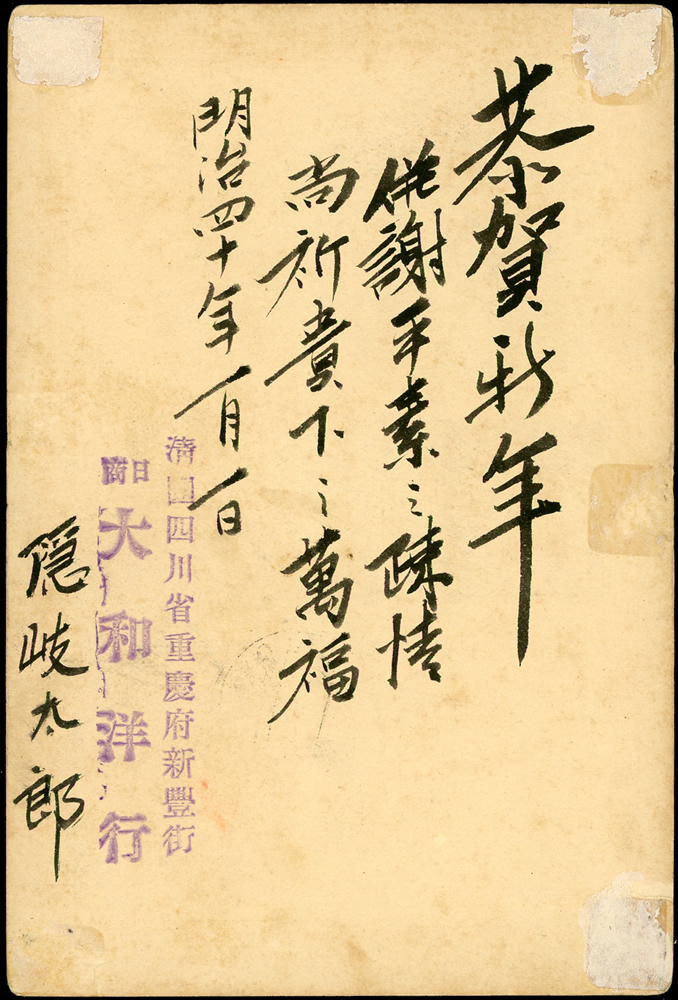 恭賀新年
併謝平素之疎情
尚祈貴下之萬福
明治四十年一月一日
清國四川省重慶府新豐街
日商
大和洋行
隱岐太郎